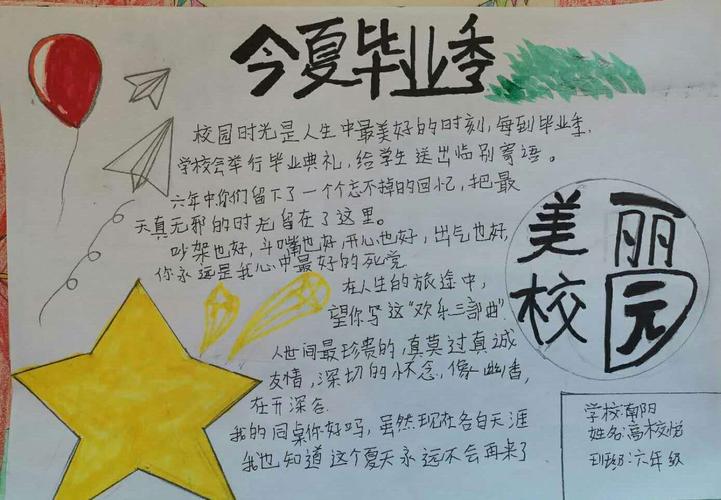 今夏毕业季
校园时光是人生中最美好的时刻,每到毕业季,
学校会举行毕业典礼,给学生送出临别寄语。
六年中你们留下了一个个忘不掉的回忆,把最
天真无邪的时光留在了这里。
吵架也好,斗嘴也好,开心也好,出气也好,
你永远是我心中最好的死党
在人生的旅途中,
望你写这“欢乐三部曲”.
人世间最珍贵的,真莫过真诚
友情,深切的怀念,像幽香,
在开深谷
我的同桌你好吗,虽然现在各自天涯
我也知道这个夏天永远不会再来了
美丽
校园
学校:朝阳
姓名:高校悦
班级:六年级